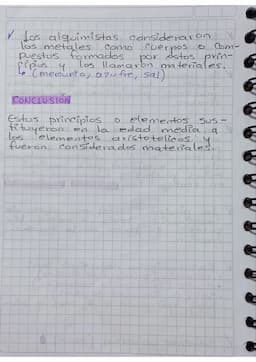 ✓ los alquimistas consideraron
los metales como cuerpos o com-
puestos formados por estos prin-
cipios y los llamaron materiales.
↳ (mercurio, azufre, sal)
CONCLUSIÓN
Estos principios o elementos sus-
tituyeron en la edad media a
los elementos aristotelicos y
fueron considerados materiales.